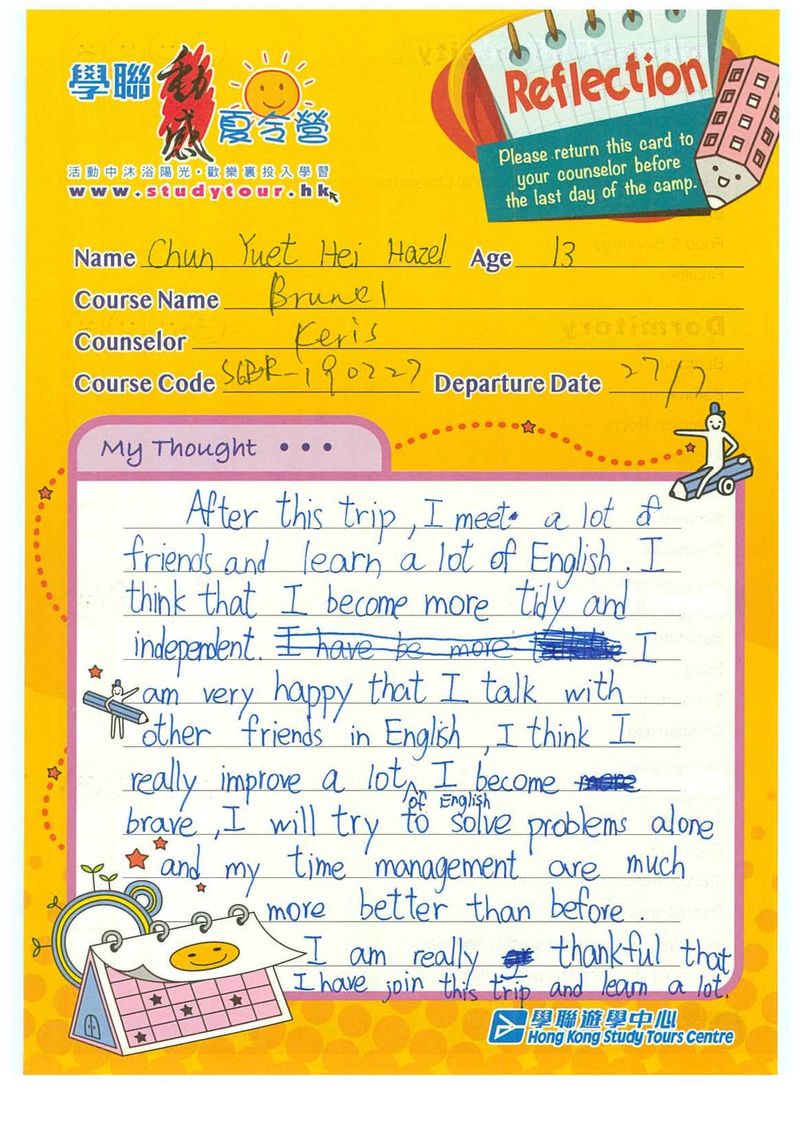 學聯 動感 夏令營
活動中沐浴陽光•歡樂裏投入學習
www.studytour.hk
Reflection
Please return this card to
your counselor before
the last day of the camp.
Name Chun Yuet Hei Hazel Age 13
Course Name Brunel
Counselor Keris
Course Code SGBR-190727 Departure Date 27/7
My Thought •••
After this trip, I meet a lot of
friends and learn a lot of English. I
think that I become more tidy and
independent. I have be more I
am very happy that I talk with
other friends in English, I think I
really improve a lot of English I become more
brave, I will try to solve problems alone
and my time management are much
more better than before.
I am really thankful that
I have join this trip and learn a lot.
學聯遊學中心
Hong Kong Study Tours Centre